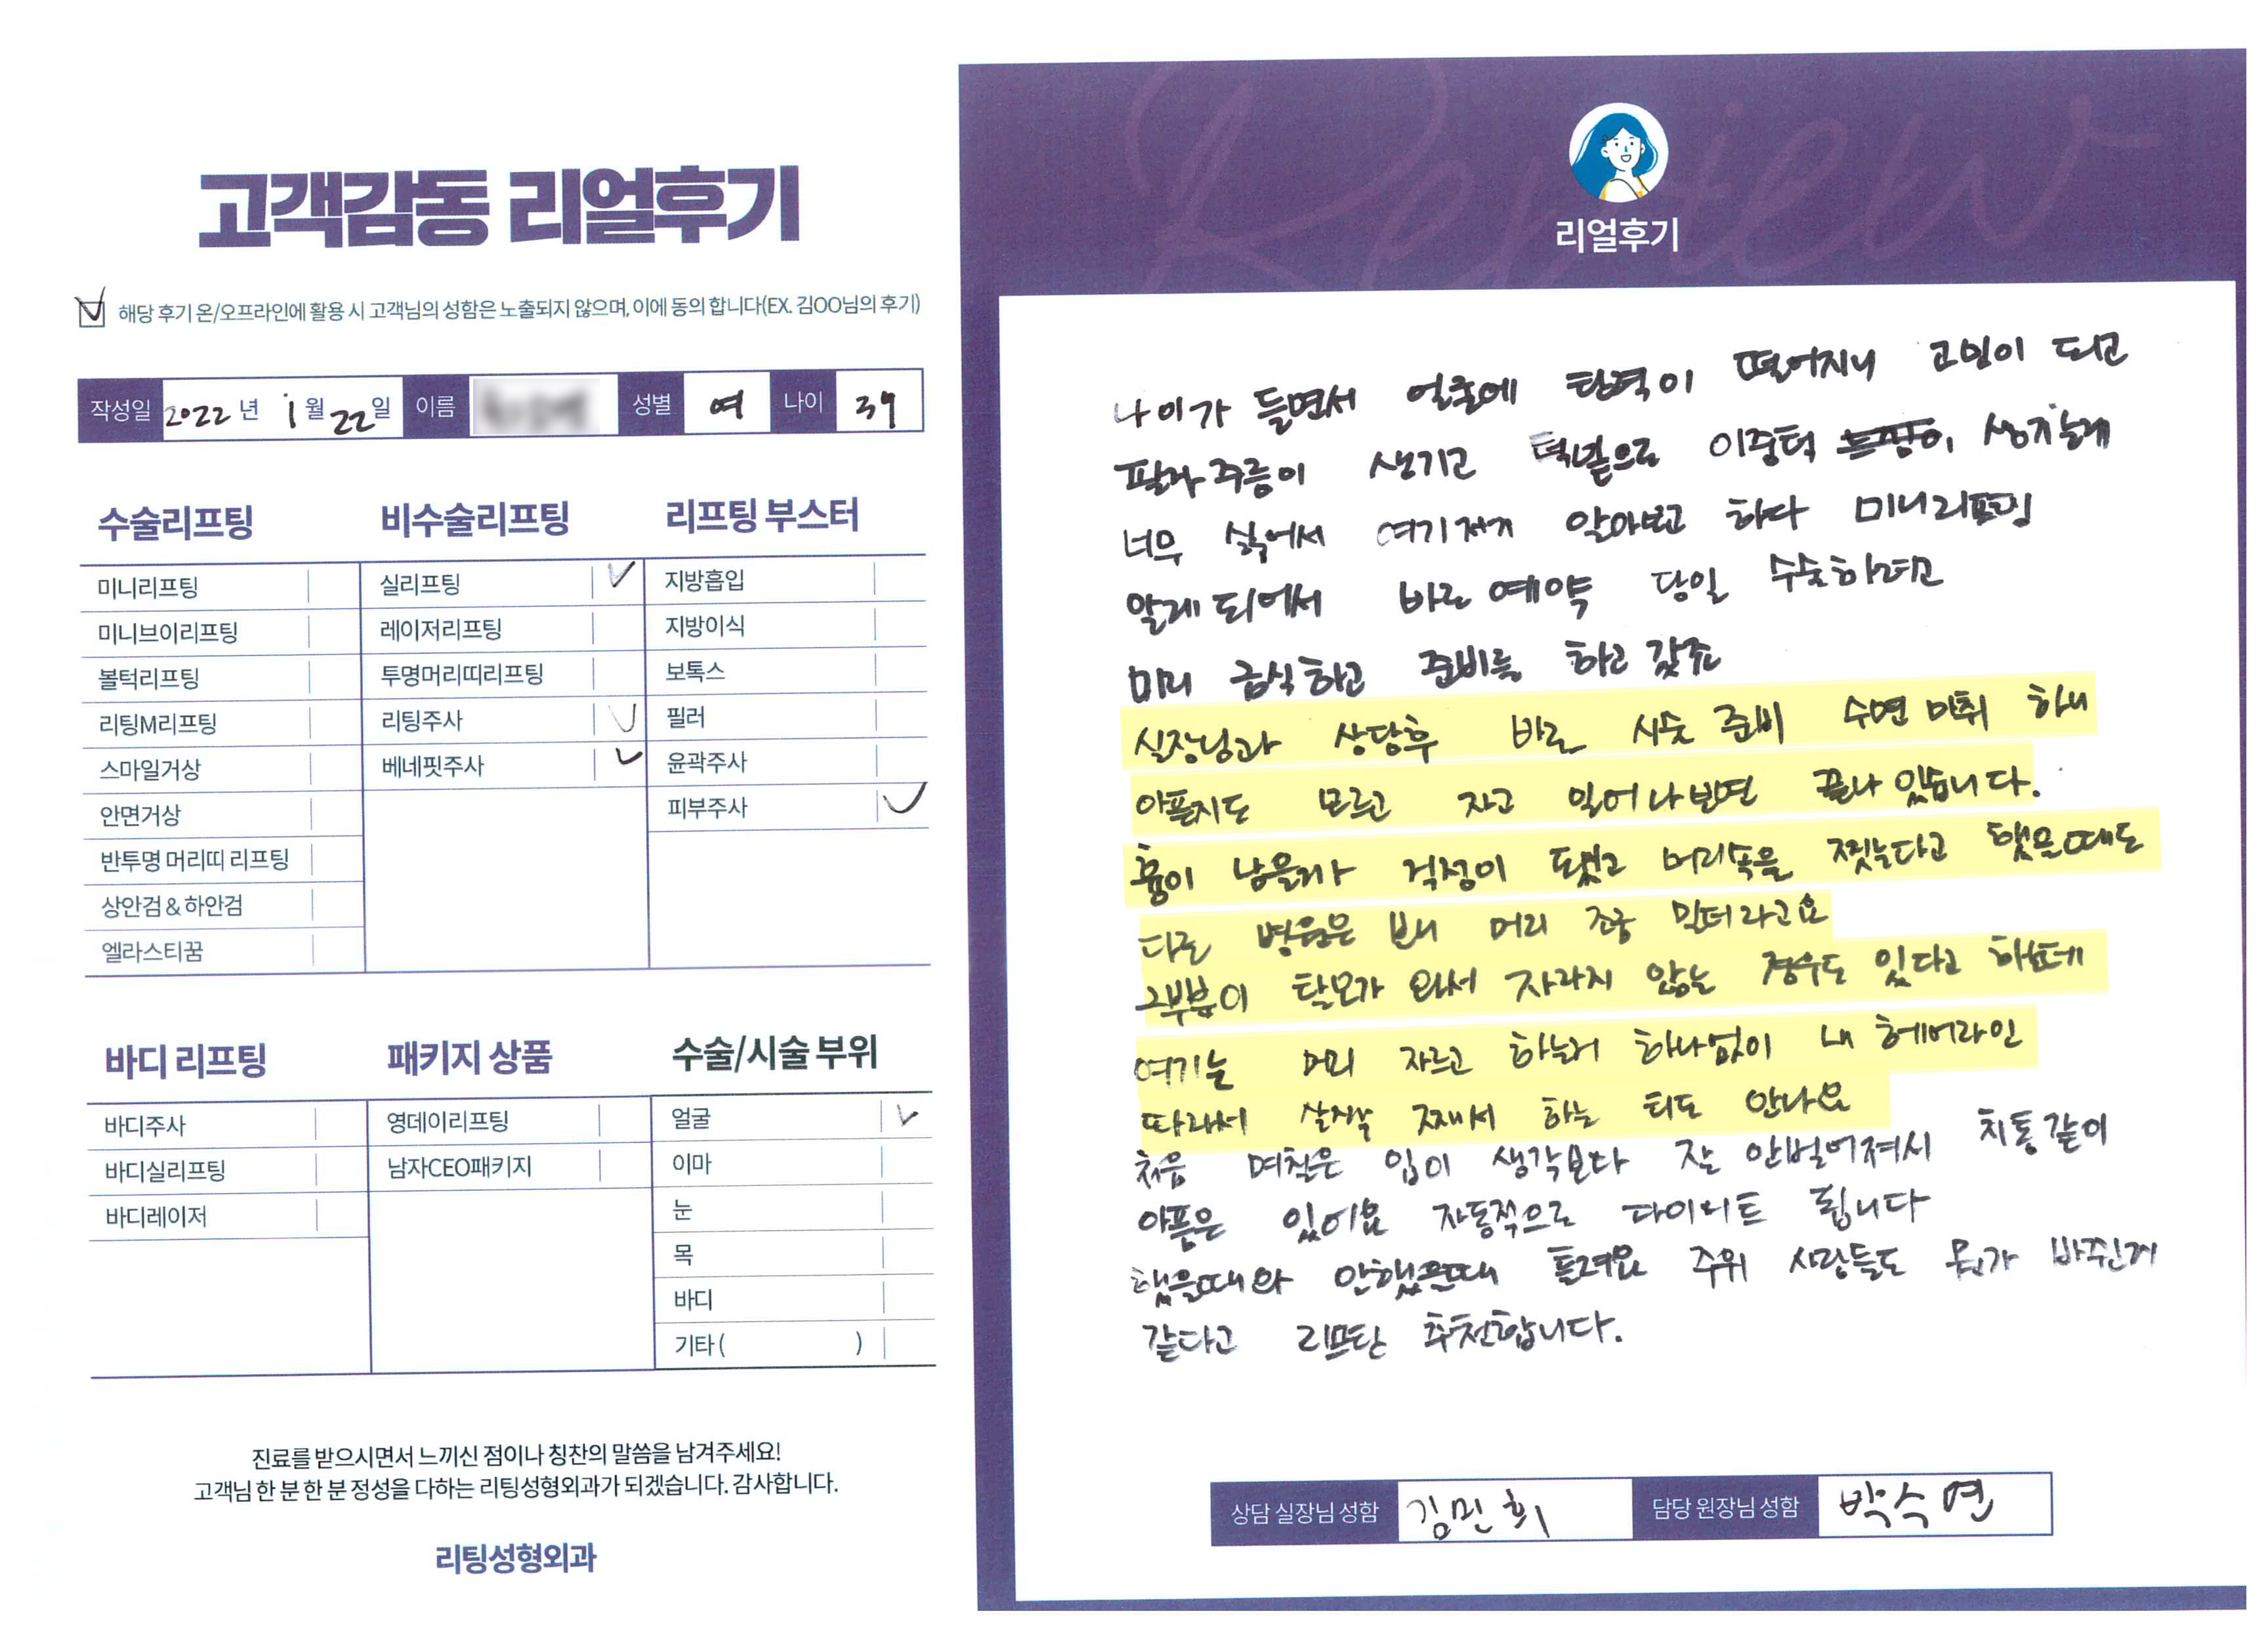 고객감동 리얼후기
해당 후기 온/오프라인에 활용 시 고객님의 성함은 노출되지 않으며, 이에 동의 합니다(EX. 김OO님의 후기)
작성일 2022 년 1 월 22 일 이름 성별 여 나이 39
수술리프팅
미니리프팅
미니브이리프팅
볼턱리프팅
리팅M리프팅
스마일거상
안면거상
반투명 머리띠 리프팅
상안검 & 하안검
엘라스티꿈
비수술리프팅
실리프팅
레이저리프팅
투명머리띠리프팅
리팅주사
베네핏주사
리프팅 부스터
지방흡입
지방이식
보톡스
필러
윤곽주사
피부주사
바디 리프팅
바디주사
바디실리프팅
바디레이저
패키지 상품
영데이리프팅
남자CEO패키지
수술/시술 부위
얼굴
이마
눈
목
바디
기타 ( )
진료를 받으시면서 느끼신 점이나 칭찬의 말씀을 남겨주세요!
고객님 한 분 한 분 정성을 다하는 리팅성형외과가 되겠습니다. 감사합니다.
리팅성형외과
Review
리얼후기
나이가 들면서 얼굴에 탄력이 떨어지니 고민이 되고
팔자주름이 생기고 턱밑으로 이중턱
너무 싫어서 여기저기 알아보고 하다 미니리프팅
알게 되어서 바로 예약 당일 수술하려고
미리 금식하고 준비를 하고 갔죠
실장님과 상담후 바로 시술 준비 수면 마취 하니
아픈지도 모르고 자고 일어나보면 끝나 있습니다.
흉이 남을까 걱정이 됐고 머리속을 찢는다고 했을때도
다른 병원은 보니 머리 조금 밀더라고요
그부분이 탈모가 와서 자라지 않는 경우도 있다고 하는데
여기는 머리 자르고 하는거 하나없이 내 헤어라인
따라서 살짝 째서 하는 티도 안나요
처음 며칠은 입이 생각보다 잘 안벌어져서 치통같이
아픔은 있어요 자동적으로 다이어트 됩니다
했을때와 안했을때 틀려요 주위 사람들도 뭔가 바뀐거
같다고 리프팅 추천합니다.
상담 실장님 성함 김민희 담당 원장님 성함 박수연